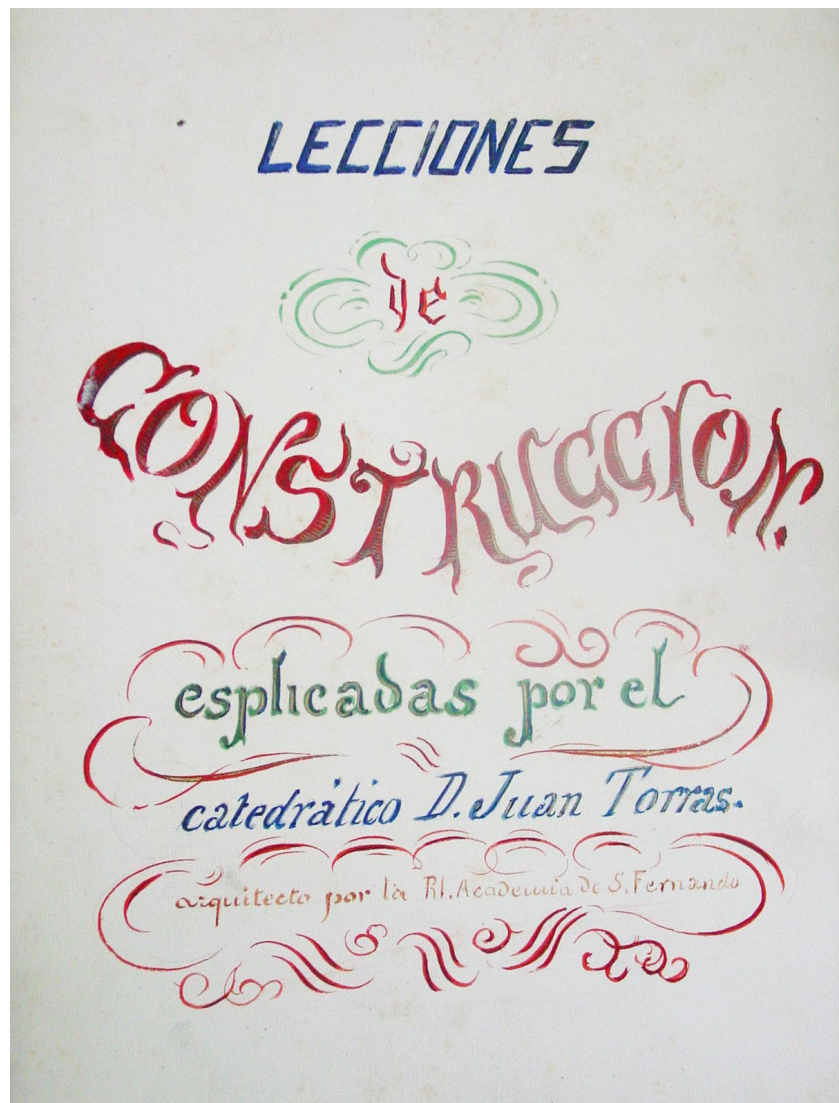 LECCIONES
de
CONSTRUCCION.
esplicadas por el
catedrático D. Juan Torras.
arquitecto por la Rl. Academia de S. Fernando